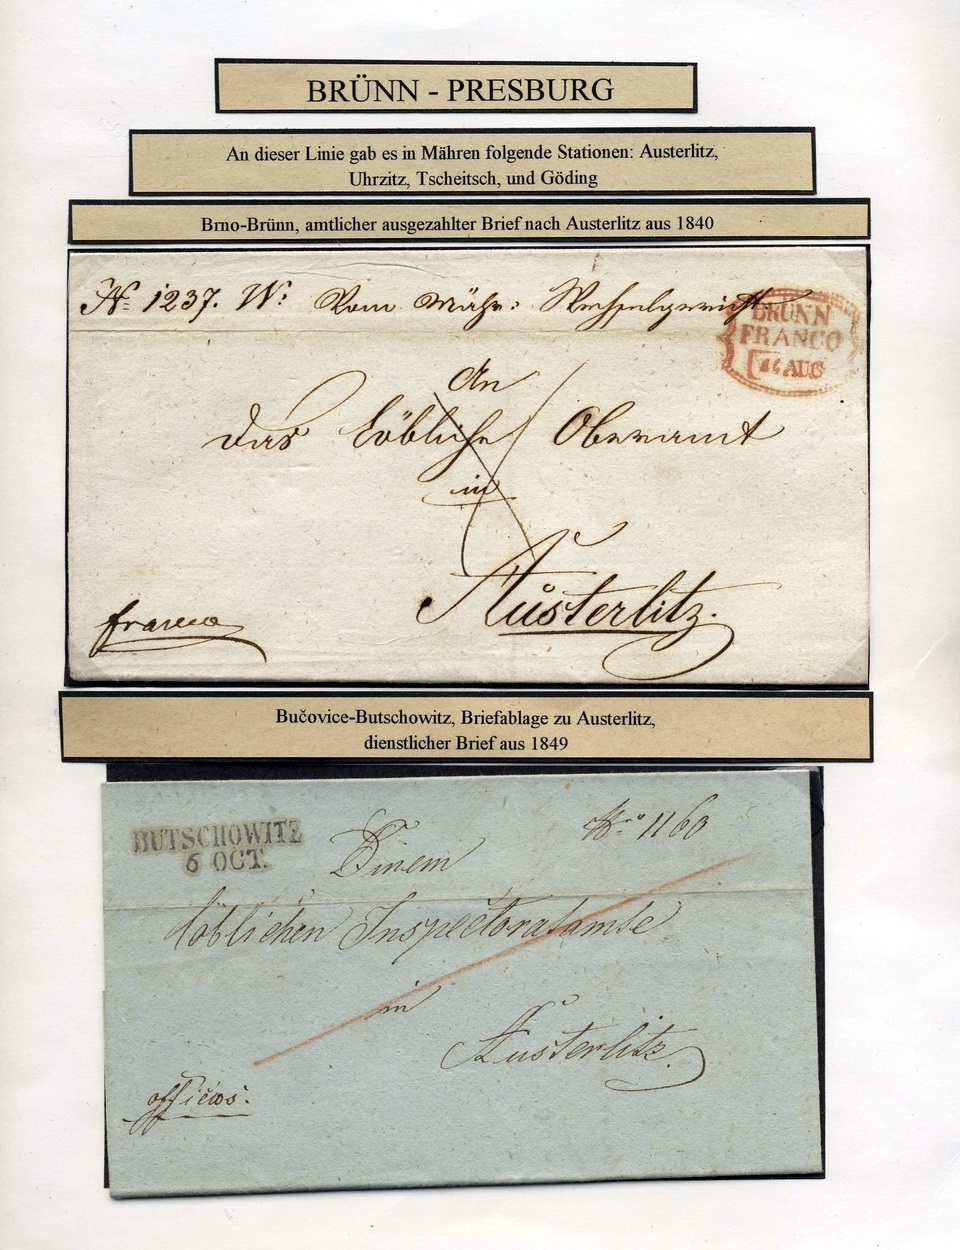 BRÜNN - PRESBURG
An dieser Linie gab es in Mähren folgende Stationen: Austerlitz,
Uhrzitz, Tscheitsch, und Göding
Brno-Brünn, amtlicher ausgezahlter Brief nach Austerlitz aus 1840
No 1237. W: Vom Mähr: Wechselgericht
BRÜNN
FRANCO
AUG
An
das löbliche Oberamt
in
Austerlitz.
franco
Bučovice-Butschowitz, Briefablage zu Austerlitz,
dienstlicher Brief aus 1849
BUTSCHOWITZ
6 OCT.
Nro 1160
Einem
löblichen Inspectoratsamte
in
Austerlitz
officios: